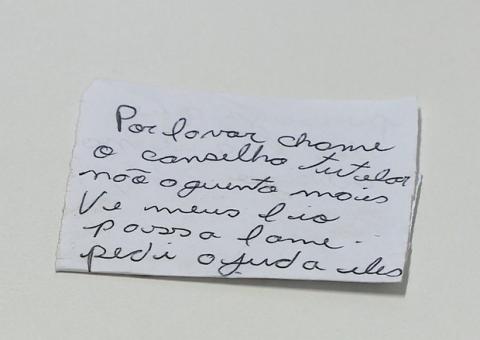 Por favor chame
o conselho tutelar
não aguento mais
Ve meus fio
passa fome.
pedi ajuda eles